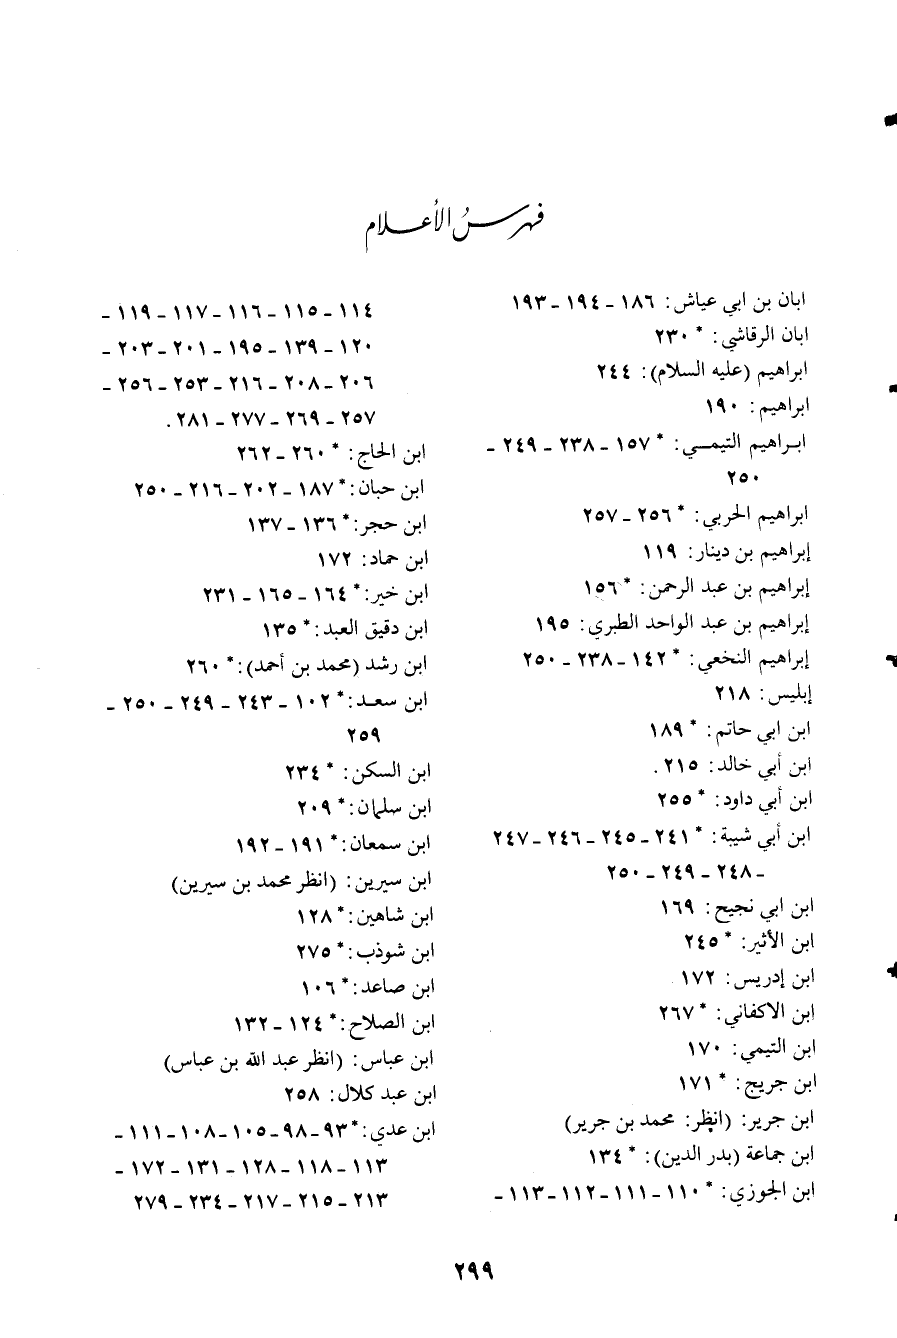 فهرسُ الأعلام
ابان بن ابي عياش: ١٨٦ - ١٩٤ - ١٩٣
ابان الرقاشي: * ٢٣٠
ابراهيم (عليه السلام): ٢٤٤
ابراهيم: ١٩٠
ابراهيم التيمي: * ١٥٧ - ٢٣٨ - ٢٤٩ -
٢٥٠
ابراهيم الحربي: * ٢٥٦ - ٢٥٧
إبراهيم بن دينار: ١١٩
إبراهيم بن عبد الرحمن: * ١٥٦
إبراهيم بن عبد الواحد الطبري: ١٩٥
إبراهيم النخعي: * ١٤٢ - ٢٣٨ - ٢٥٠
إبليس: ٢١٨
ابن ابي حاتم: * ١٨٩
ابن أبي خالد: ٢١٥ .
ابن أبي داود: * ٢٥٥
ابن أبي شيبة: * ٢٤١ - ٢٤٥ - ٢٤٦ - ٢٤٧
- ٢٤٨ - ٢٤٩ - ٢٥٠
ابن ابي نجيح: ١٦٩
ابن الأثير: * ٢٤٥
ابن إدريس: ١٧٢
ابن الاكفاني: * ٢٦٧
ابن التيمي: ١٧٠
ابن جريج: * ١٧١
ابن جرير: (انظر: محمد بن جرير)
ابن جماعة (بدر الدين): * ١٣٤
ابن الجوزي: * ١١٠ - ١١١ - ١١٢ - ١١٣ -
١١٤ - ١١٥ - ١١٦ - ١١٧ - ١١٩ -
١٢٠ - ١٣٩ - ١٩٥ - ٢٠١ - ٢٠٣ -
٢٠٦ - ٢٠٨ - ٢١٦ - ٢٥٣ - ٢٥٦ -
٢٥٧ - ٢٦٩ - ٢٧٧ - ٢٨١ .
ابن الحاج: * ٢٦٠ - ٢٦٢
ابن حبان: * ١٨٧ - ٢٠٢ - ٢١٦ - ٢٥٠
ابن حجر: * ١٣٦ - ١٣٧
ابن حماد: ١٧٢
ابن خير: * ١٦٤ - ١٦٥ - ٢٣١
ابن دقيق العبد: * ١٣٥
ابن رشد (محمد بن أحمد): * ٢٦٠
ابن سعد: * ١٠٢ - ٢٤٣ - ٢٤٩ - ٢٥٠ -
٢٥٩
ابن السكن: * ٢٣٤
ابن سلمان: * ٢٠٩
ابن سمعان: * ١٩١ - ١٩٢
ابن سيرين: (انظر محمد بن سيرين)
ابن شاهين: * ١٢٨
ابن شوذب: * ٢٧٥
ابن صاعد: * ١٠٦
ابن الصلاح: * ١٢٤ - ١٣٢
ابن عباس: (انظر عبد الله بن عباس)
ابن عبد كلال: ٢٥٨
ابن عدي: * ٩٣ - ٩٨ - ١٠٥ - ١٠٨ - ١١١ -
١١٣ - ١١٨ - ١٢٨ - ١٣١ - ١٧٢ -
٢١٣ - ٢١٥ - ٢١٧ - ٢٣٤ - ٢٧٩
٢٩٩